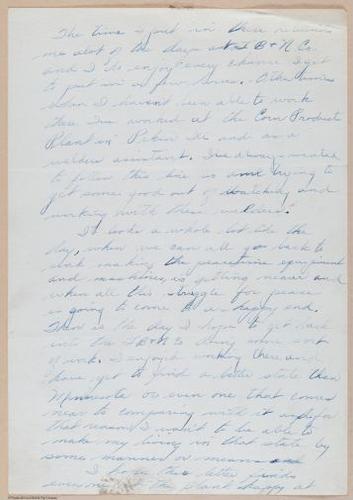 The time I put in there reminds
me alot of the days at B & N Co.
and I do enjoy every chance I get
to put in a few hours. Other times
when I haven't been able to work
there I've worked at the Corn Products
Plant in Pekin Ill. and as a
welders assistant. I've always wanted
to follow this line & am trying to
get some good out of watching and
working with these welders.
It looks a whole lot like the
day, when we can all go back to
work making the peacetime equipment
and machines, is getting nearer and
when all this struggle for peace
is going to come to a happy end.
That is the day I hope to get back
into the B & N Co doing some sort
of work. I enjoyed working there and
have yet to find a better state than
Minnesota or even one that comes
near to comparing with it and for
that reason I want to be able to
make my living in that state by
some manner or means
I hope this letter finds
everyone at the plant happy at